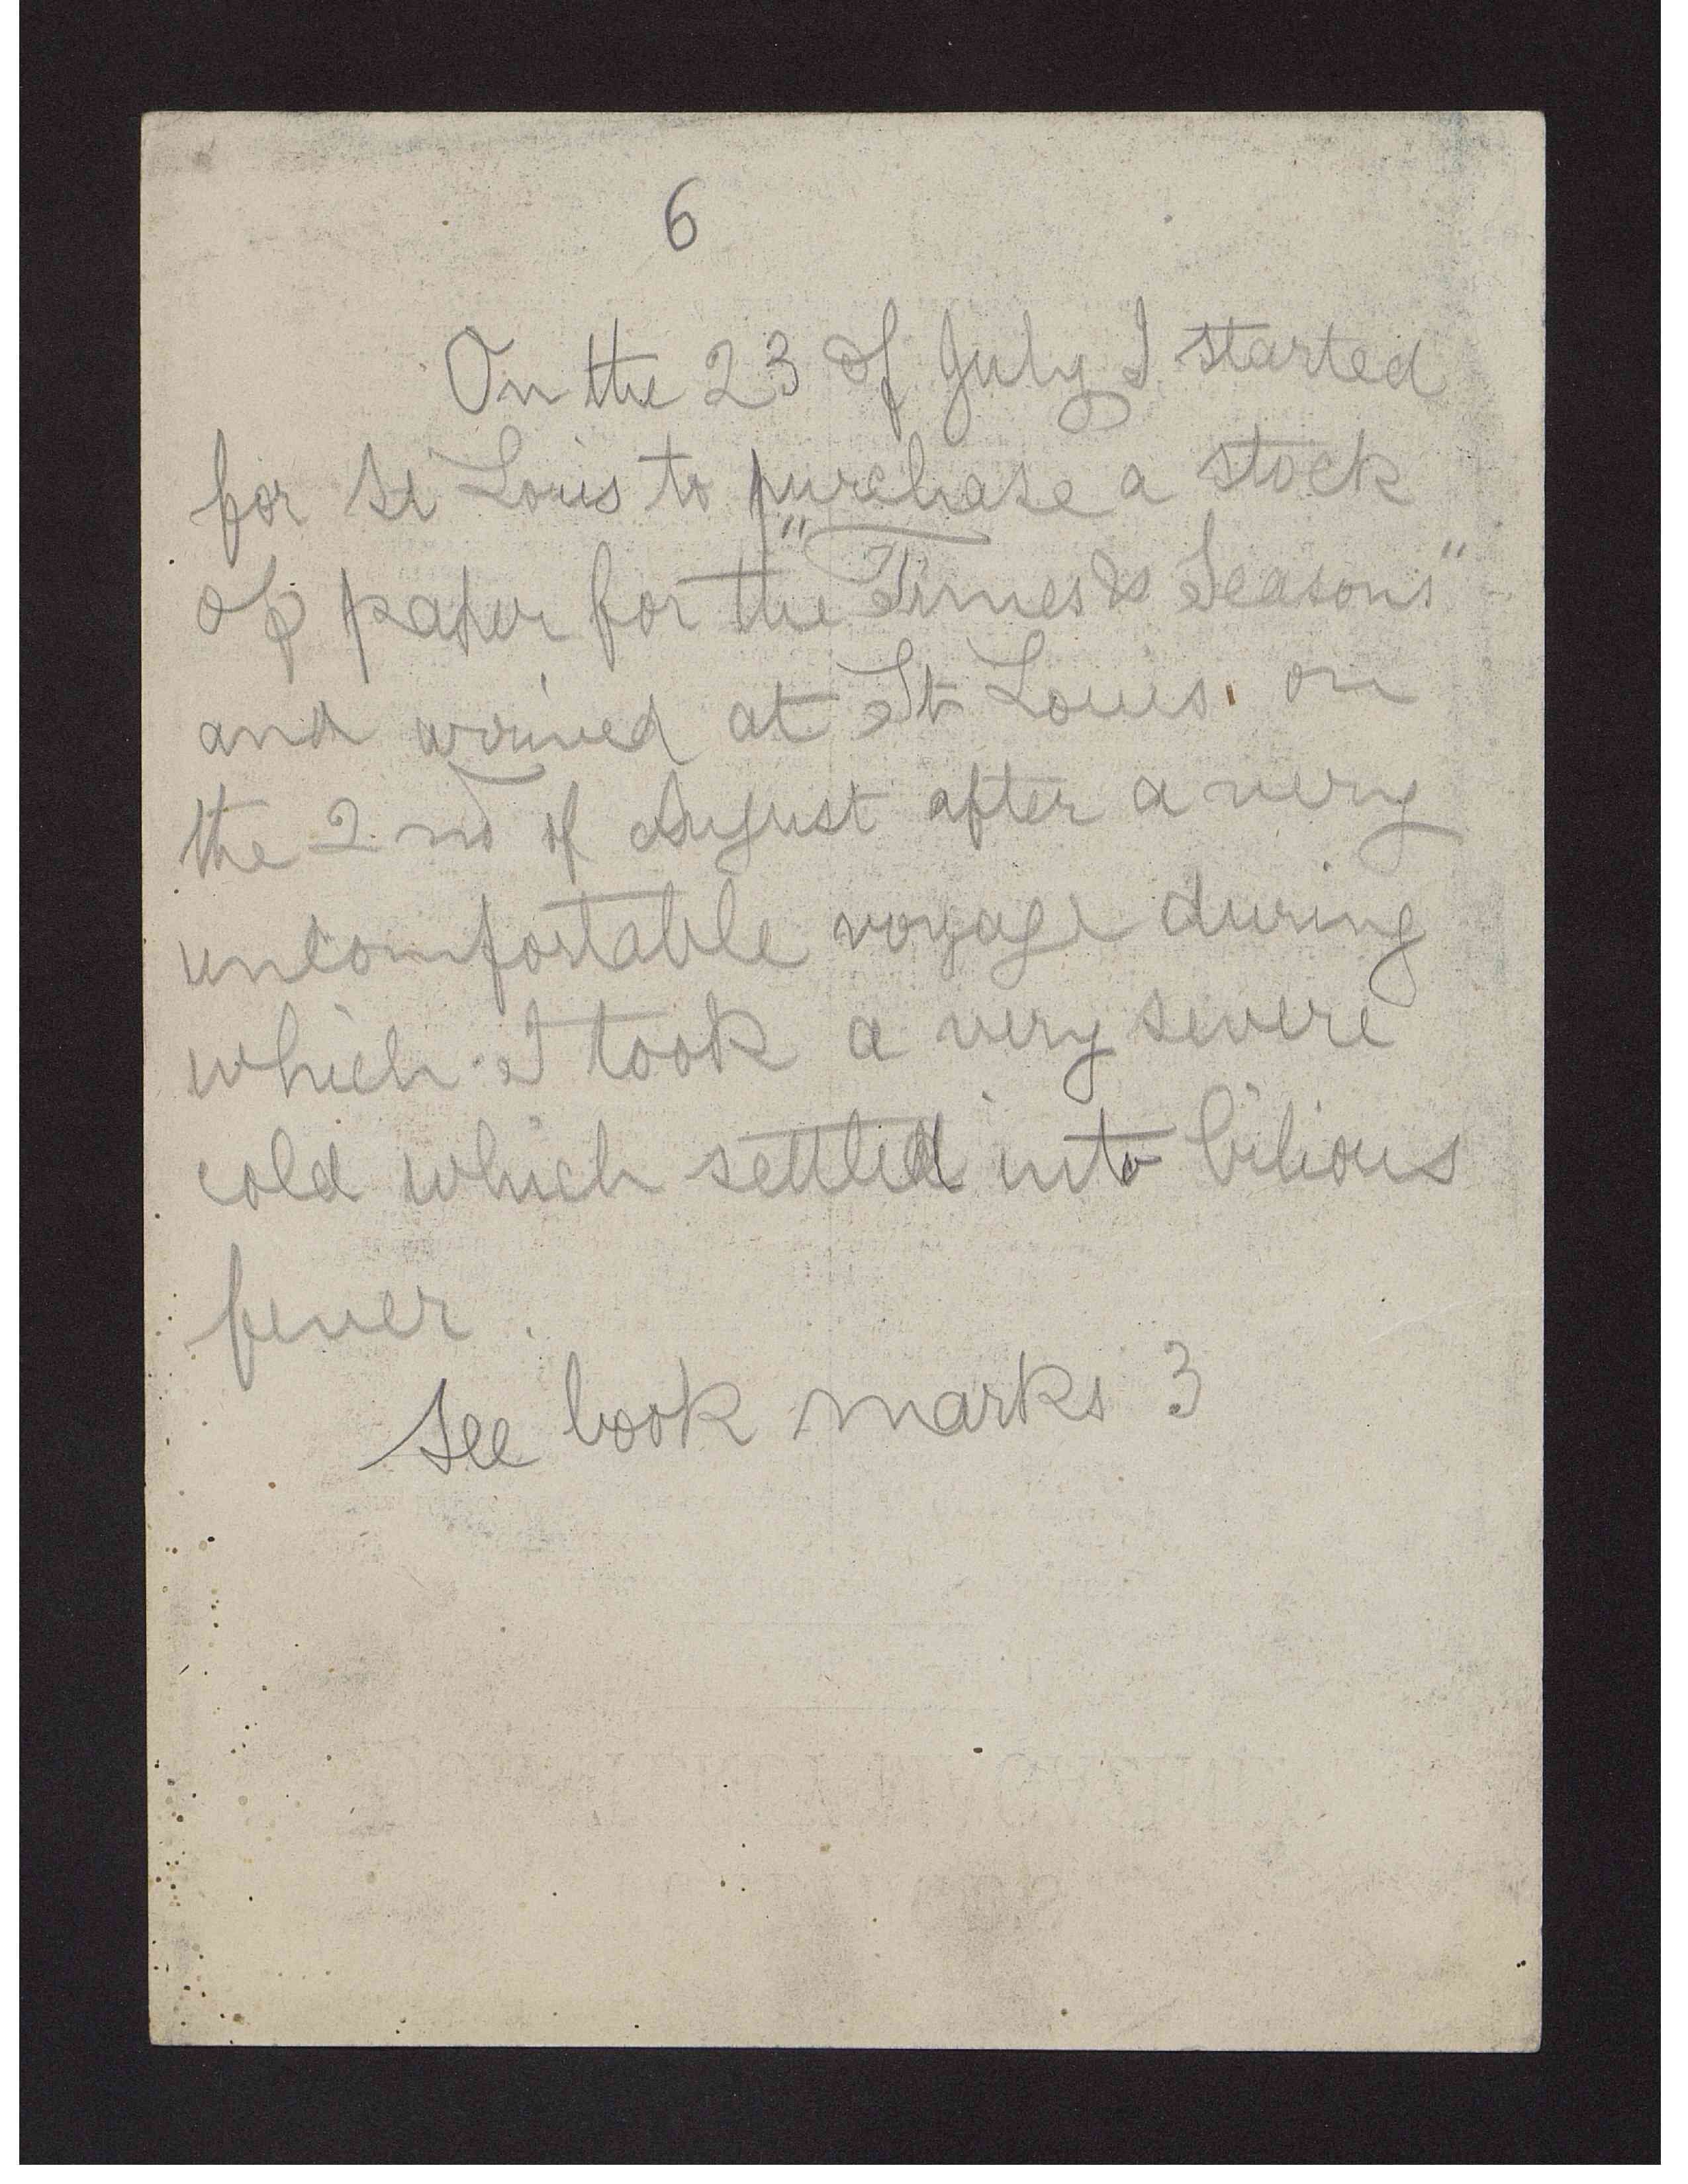 6
On the 23 of July I started
for St Louis to purchase a stock
of paper for the "Times & Seasons"
and arrived at St Louis on
the 2nd of August after a very
uncomfortable voyage during
which I took a very severe
cold which settled into bilious
fever.
See book marks 3